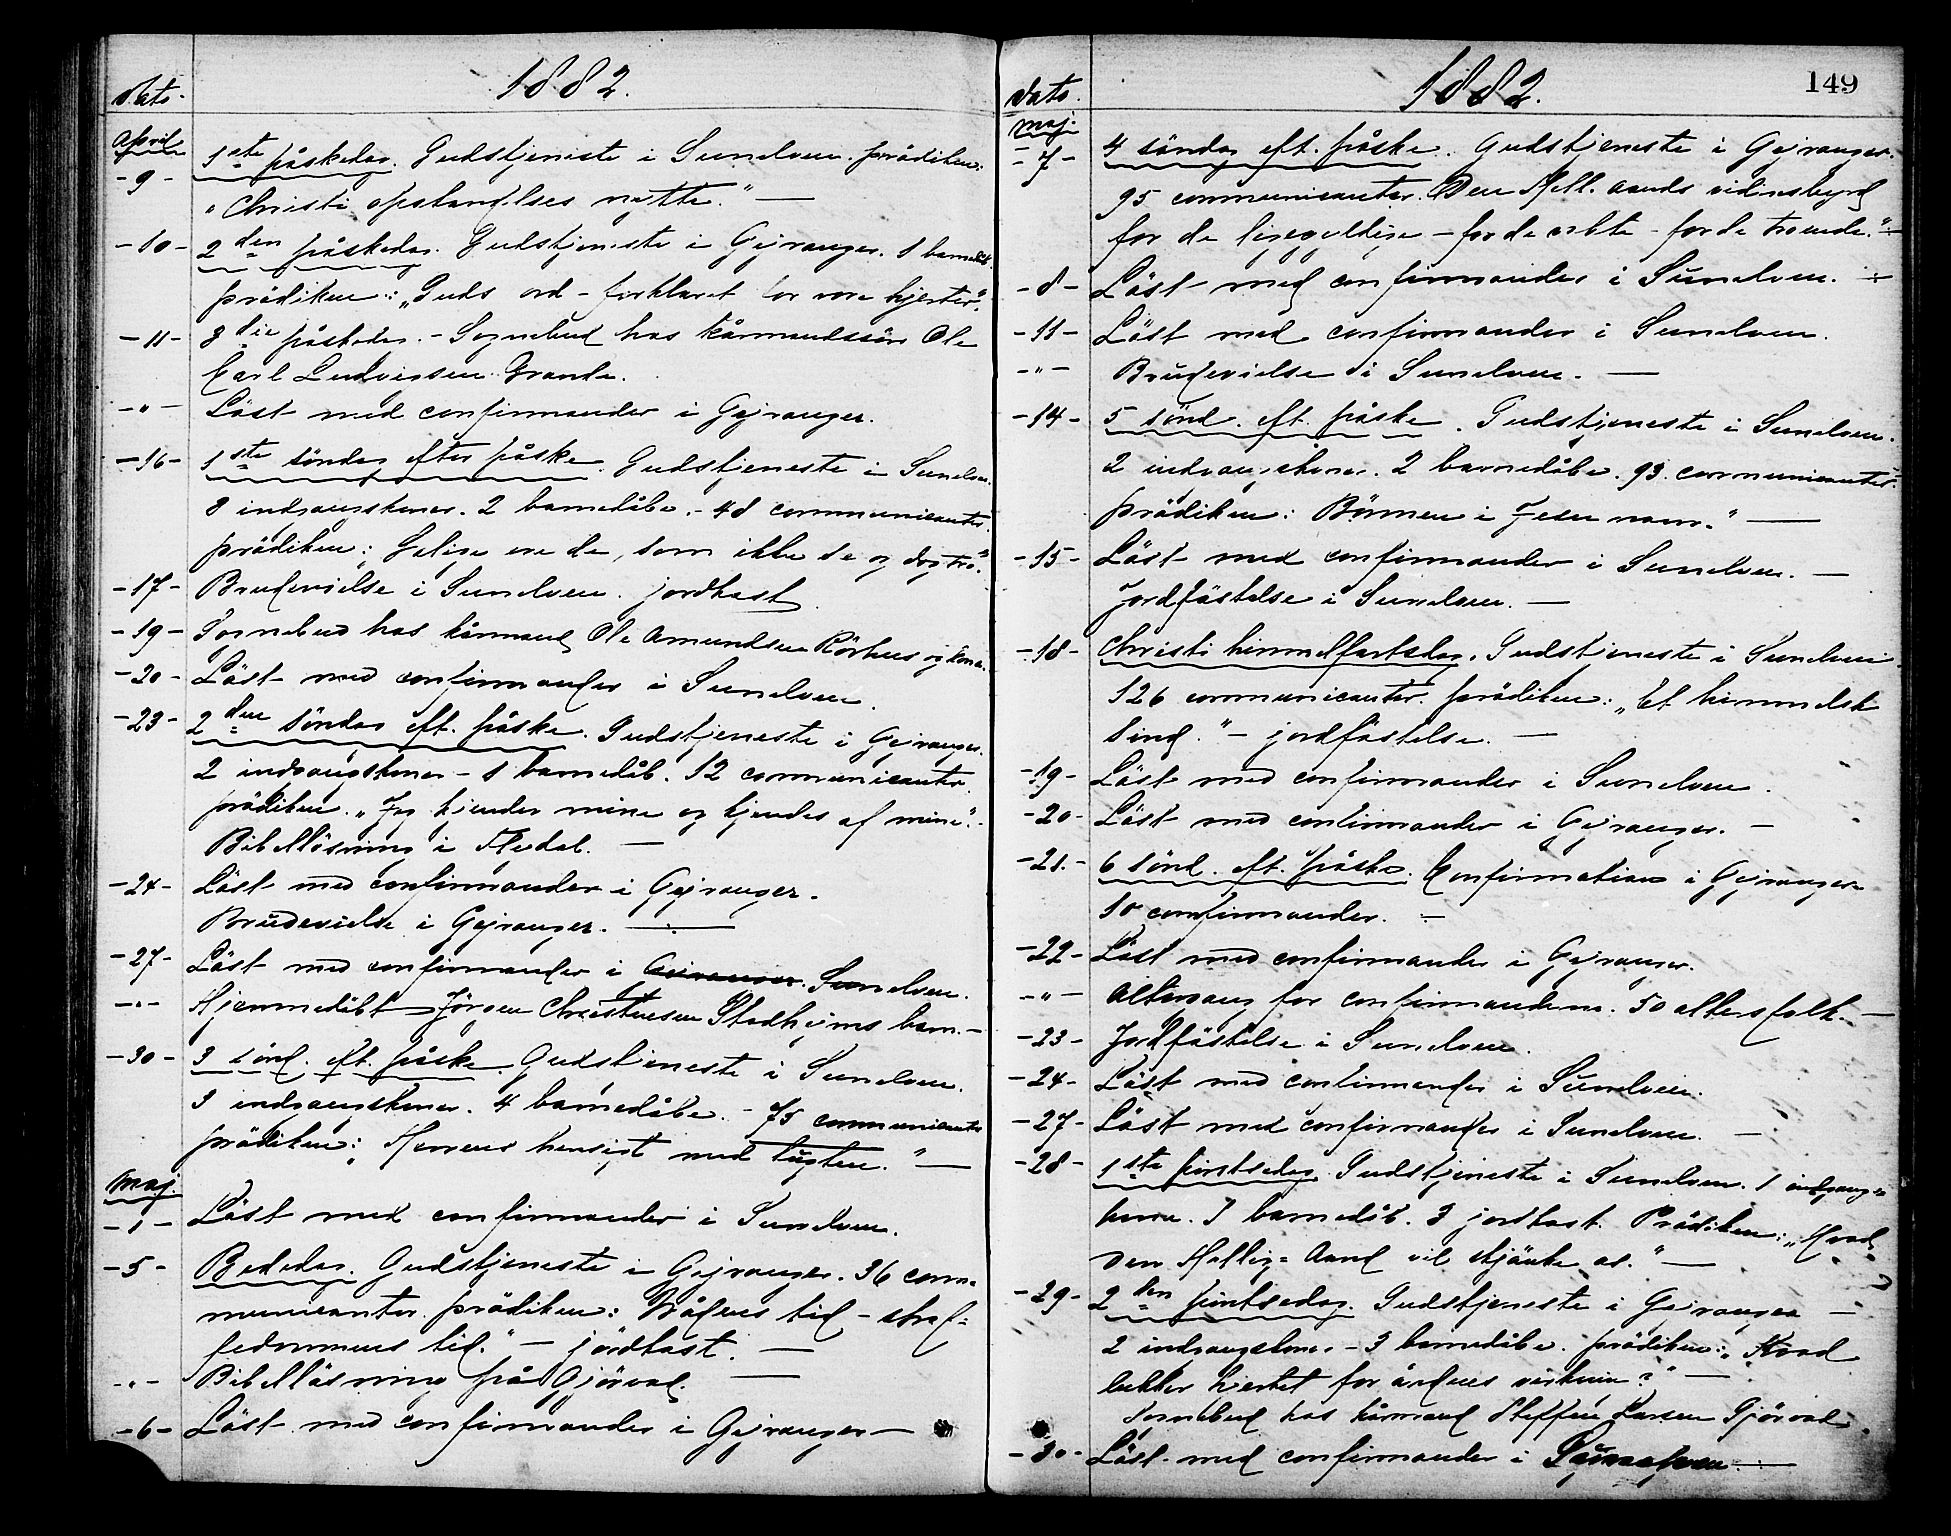 1882.
Dato.
April
-9- 1ste påskedag. Gudstjeneste i Sunelven. prädiken:
"Christi opstandelses nytte." —
-10- 2den påskedag. Gudstjeneste i Gejranger. 1 barnedåb.
prädiken: "Guds ord - forklaret for vore hjerter".
-11- 3die påskedag. - Sognebud hos kårmandssön Ole
Carl Ludvigsen Grande.
-"- Läst med confirmander i Gejranger.
-16- 1ste söndag efter påske. Gudstjeneste i Sunelven.
3 indgangskoner. 2 barnedåbe. - 48 communicanter.
prädiken: Salige ere de, som ikke se og dog tro".
-17- Brudevielse i Sunelven. jordkast.
-19- Sognebud hos kårmand Ole Amundsen Rörhus og kone.
-20- Läst med confirmander i Sunelven.
-23- 2den söndag eft. påske. Gudstjeneste i Gejranger.
2 indgangskoner - 1 barnedåb. 12 communicanter.
prädiken. "Jeg kjender mine og kjendes af mine".
Bibelläsning i Flydal. —
-24- Läst med confirmander i Gejranger.
Brudevielse i Gejranger. —
-27- Läst med confirmander i Gejranger. Sunelven.
-"- Hjemmedöbt Jörgen Christensen Stadhejms barn. -
-30- 3 sönd. eft. påske. Gudstjeneste i Sunelven.
3 indgangskoner. 4 barnedåbe. - 75 communicanter
prädiken: "Herrens hensigt med tugten." —
Maj.
-1- Läst med confirmander i Sunelven.
-5- Bededag. Gudstjeneste i Gejranger. 36 com-
municanter. prädiken: Nådens tid - straf=
fedommens tid." - jordkast. —
-"- Bibelläsning på Gjörvad. —
-6- Läst med confirmander i Gejranger —
1882.
149
Dato.
Maj.
-7- 4 söndag eft. påske. Gudstjeneste i Gejranger.
95 communicanter. Den Hell. aands vidnesbyrd
for de ligegyldige - for de vakte - for de troende." -
-8- Läst med confirmander i Sunelven. -
-11- Läst med confirmander i Sunelven.
-"- Brudevielse i Sunelven. —
-14- 5 sönd. eft. påske. Gudstjeneste i Sunelven.
2 indgangskoner. 2 barnedåbe. 93. communicanter.
prädiken: Bönnen i Jesu navn." —
-15- Läst med confirmander i Sunelven. —
Jordfästelse i Sunelven. —
-18- Christi himmelfartsdag. Gudstjeneste i Sunelven.
126 communicanter. prädiken: "Et himmelsk
sind." - jordfästelse. —
-19- Läst med confirmander i Sunelven.
-20- Läst med confirmander i Gejranger. —
-21. 6 sönd. eft. påske. Confirmation i Gejranger
10 confirmander. -
-22- Läst med confirmander i Gejranger.
-"- Altergang for confirmanderne. 50 altersfolk. —
-23- Jordfästelse i Sunelven.
-24- Läst med confirmander i Sunelven.
-27- Läst med confirmander i Sunelven. —
-28- 1ste pintsedag. Gudstjeneste i Sunelven. 1 indgangs=
kone. 1 barnedåb. 3 jordkast. Prädiken: "Hvad
den Hellig=Aand vil skjänke os." —
-29- 2den pintsedag. Gudstjeneste i Gejranger —
2 indgangskoner - 3 barnedåbe. prädiken: "Hvad
lukker hjertet for åndens virksen?" —
Sognebud hos kårmand Steffen Larsen Gjörvad.
-30- Läst med confirmander i Sunelven. —